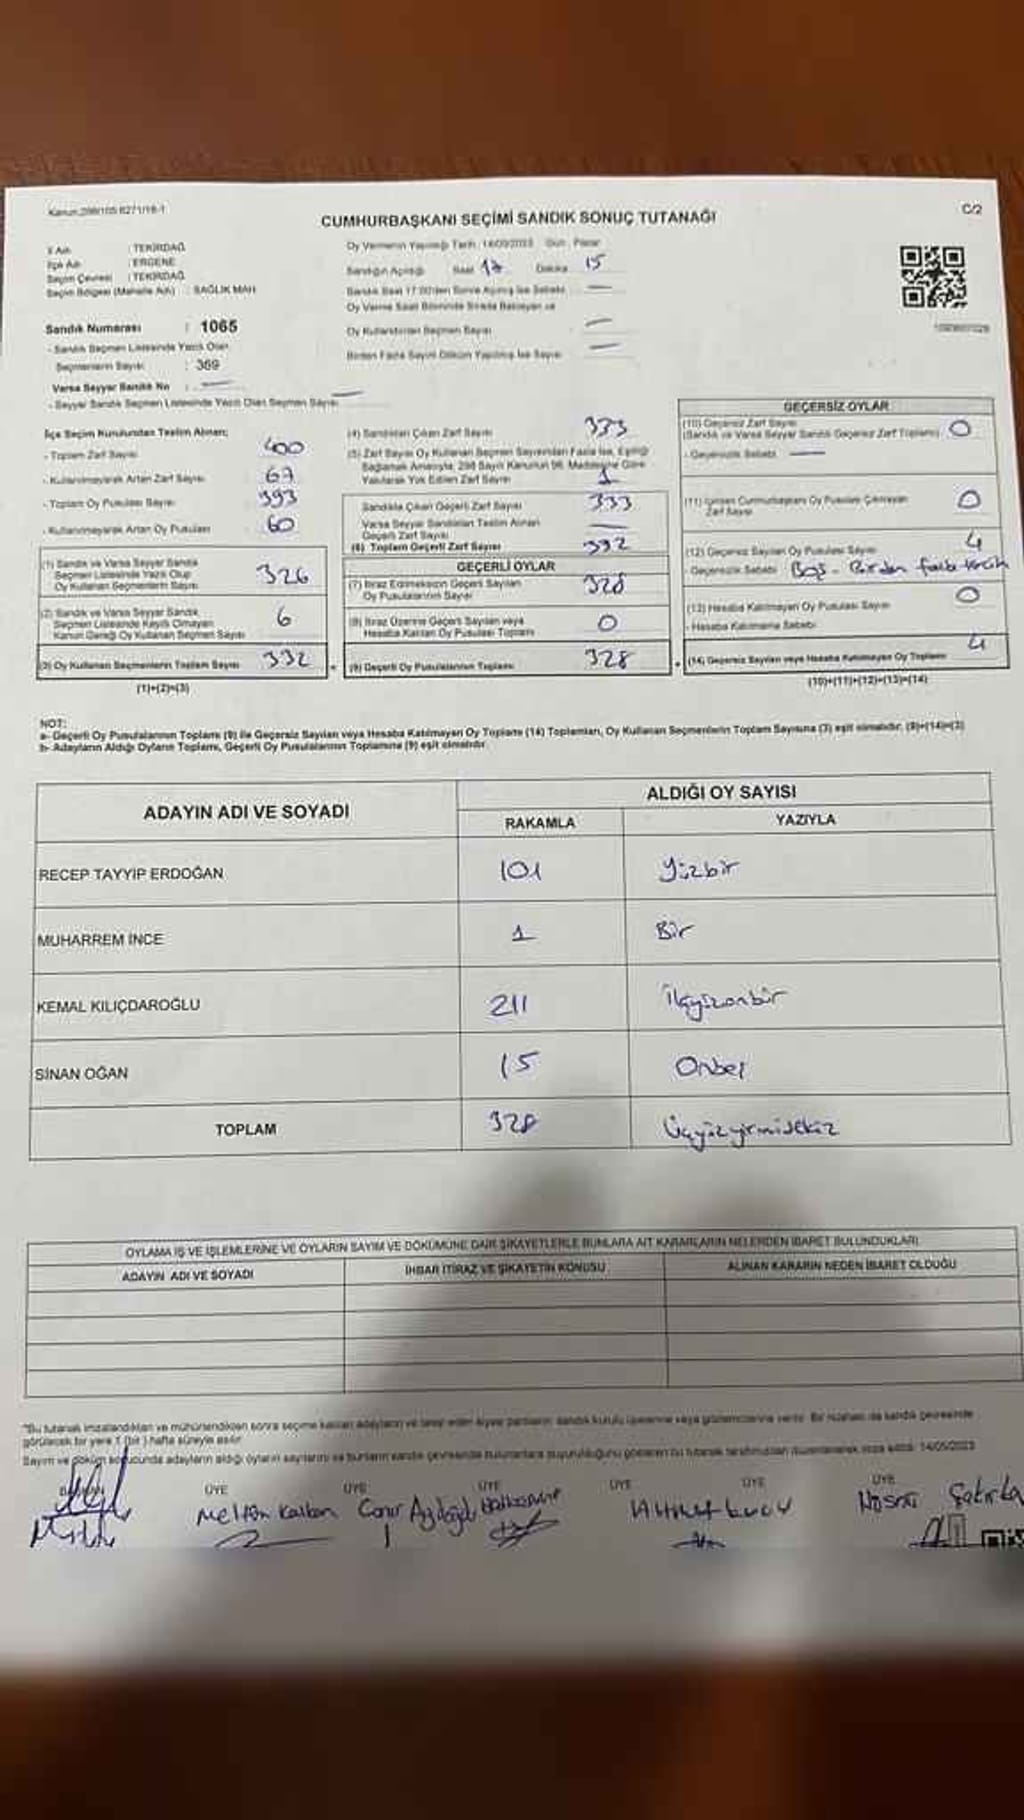 Kanun:298/105-6271/18-1
C/2
CUMHURBAŞKANI SEÇİMİ SANDIK SONUÇ TUTANAĞI
İl Adı : TEKİRDAĞ
İlçe Adı : ERGENE
Seçim Çevresi : TEKİRDAĞ
Seçim Bölgesi (Mahalle Adı) : SAĞLIK MAH
Sandık Numarası : 1065
- Sandık Seçmen Listesinde Yazılı Olan
Seçmenlerin Sayısı : 369
Varsa Seyyar Sandık No : —
- Seyyar Sandık Seçmen Listesinde Yazılı Olan Seçmen Sayısı —
Oy Vermenin Yapıldığı Tarih : 14/05/2023 Gün : Pazar
Sandığın Açıldığı Saat 17 Dakika 15
Sandık Saat 17:00'den Sonra Açılmış İse Sebebi —
Oy Verme Saati Bitiminde Sırada Bekleyen ve
Oy Kullandırılan Seçmen Sayısı —
Birden Fazla Sayım Döküm Yapılmış İse Sayısı —
İlçe Seçim Kurulundan Teslim Alınan;
- Toplam Zarf Sayısı 400
- Kullanılmayarak Artan Zarf Sayısı 67
- Toplam Oy Pusulası Sayısı 393
- Kullanılmayarak Artan Oy Pusulası 60
(1) Sandık ve Varsa Seyyar Sandık
Seçmen Listesinde Yazılı Olup
Oy Kullanan Seçmenlerin Sayısı 326
(2) Sandık ve Varsa Seyyar Sandık
Seçmen Listesinde Kaydı Olmayan
Kanun Gereği Oy Kullanan Seçmen Sayısı 6
(3) Oy Kullanan Seçmenlerin Toplam Sayısı 332
(1)+(2)=(3)
(4) Sandıktan Çıkan Zarf Sayısı 333
(5) Zarf Sayısı Oy Kullanan Seçmen Sayısından Fazla İse, Eşitliği
Sağlamak Amacıyla, 298 Sayılı Kanunun 98. Maddesine Göre
Yakılarak Yok Edilen Zarf Sayısı 1
Sandıkta Çıkan Geçerli Zarf Sayısı 333
Varsa Seyyar Sandıktan Teslim Alınan
Geçerli Zarf Sayısı —
(6) Toplam Geçerli Zarf Sayısı 332
GEÇERLİ OYLAR
(7) İtiraz Edilmeksizin Geçerli Sayılan
Oy Pusulalarının Sayısı 328
(8) İtiraz Üzerine Geçerli Sayılan veya
Hesaba Katılan Oy Pusulası Toplamı 0
(9) Geçerli Oy Pusulalarının Toplamı 328
GEÇERSİZ OYLAR
(10) Geçersiz Zarf Sayısı
(Sandık ve Varsa Seyyar Sandık Geçersiz Zarf Toplamı) 0
- Geçersizlik Sebebi —
(11) İçinden Cumhurbaşkanı Oy Pusulası Çıkmayan
Zarf Sayısı 0
(12) Geçersiz Sayılan Oy Pusulası Sayısı 4
- Geçersizlik Sebebi Boş - Birden fazla tercih
(13) Hesaba Katılmayan Oy Pusulası Sayısı 0
- Hesaba Katılmama Sebebi
(14) Geçersiz Sayılan veya Hesaba Katılmayan Oy Toplamı 4
(10)+(11)+(12)+(13)=(14)
NOT:
a- Geçerli Oy Pusulalarının Toplamı (9) ile Geçersiz Sayılan veya Hesaba Katılmayan Oy Toplamı (14) Toplamları, Oy Kullanan Seçmenlerin Toplam Sayısına (3) eşit olmalıdır. (9)+(14)=(3)
b- Adayların Aldığı Oyların Toplamı, Geçerli Oy Pusulalarının Toplamına (9) eşit olmalıdır.
ADAYIN ADI VE SOYADI ALDIĞI OY SAYISI
RAKAMLA YAZIYLA
RECEP TAYYİP ERDOĞAN 101 Yüzbir
MUHARREM İNCE 1 Bir
KEMAL KILIÇDAROĞLU 211 İkiyüzonbir
SİNAN OĞAN 15 Onbeş
TOPLAM 328 Üçyüzyirmisekiz
OYLAMA İŞ VE İŞLEMLERİNE VE OYLARIN SAYIM VE DÖKÜMÜNE DAİR ŞİKAYETLERLE BUNLARA AİT KARARLARIN NELERDEN İBARET BULUNDUKLARI
ADAYIN ADI VE SOYADI İHBAR İTİRAZ VE ŞİKAYETİN KONUSU ALINAN KARARIN NEDEN İBARET OLDUĞU
"Bu tutanak imzalandıktan ve mühürlendikten sonra seçime katılan adayların ve siyasi partilerin sandık kurulu üyelerine veya gözlemcilerine verilir. Bir nüshası da sandık çevresinde
görülecek bir yere 1 (bir) hafta süreyle asılır.
BAŞKAN ÜYE ÜYE ÜYE ÜYE ÜYE ÜYE
Meltem